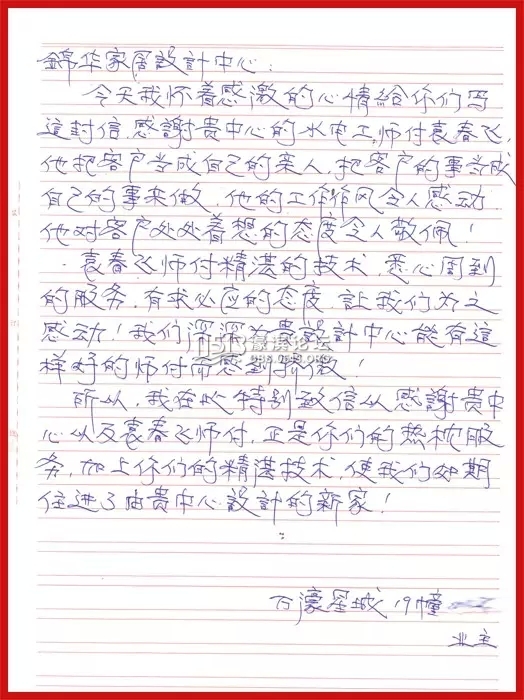 錦华家居設計中心:
今天我怀着感激的心情給你们写
這封信.感謝貴中心的水电工师付袁春飞,
他把客户当成自己的亲人.把客户的事当成
自己的事来做.他的工作作风令人感动.
他对客户处处着想的态度令人敬佩!
袁春飞师付精湛的技术,悉心周到
的服务.有求必应的态度.讓我们为之
感动!我们深深为貴設計中心能有這
样好的师付而感到
所以,我在此特别致信以感謝貴中
心以及袁春飞师付.正是你们的热枕服
务,加上你们的精湛技术,使我们如期
住进了由貴中心設計的新家!
万濠星城 19幢
业主
0513濠滨论坛
BBS.0513.ORG